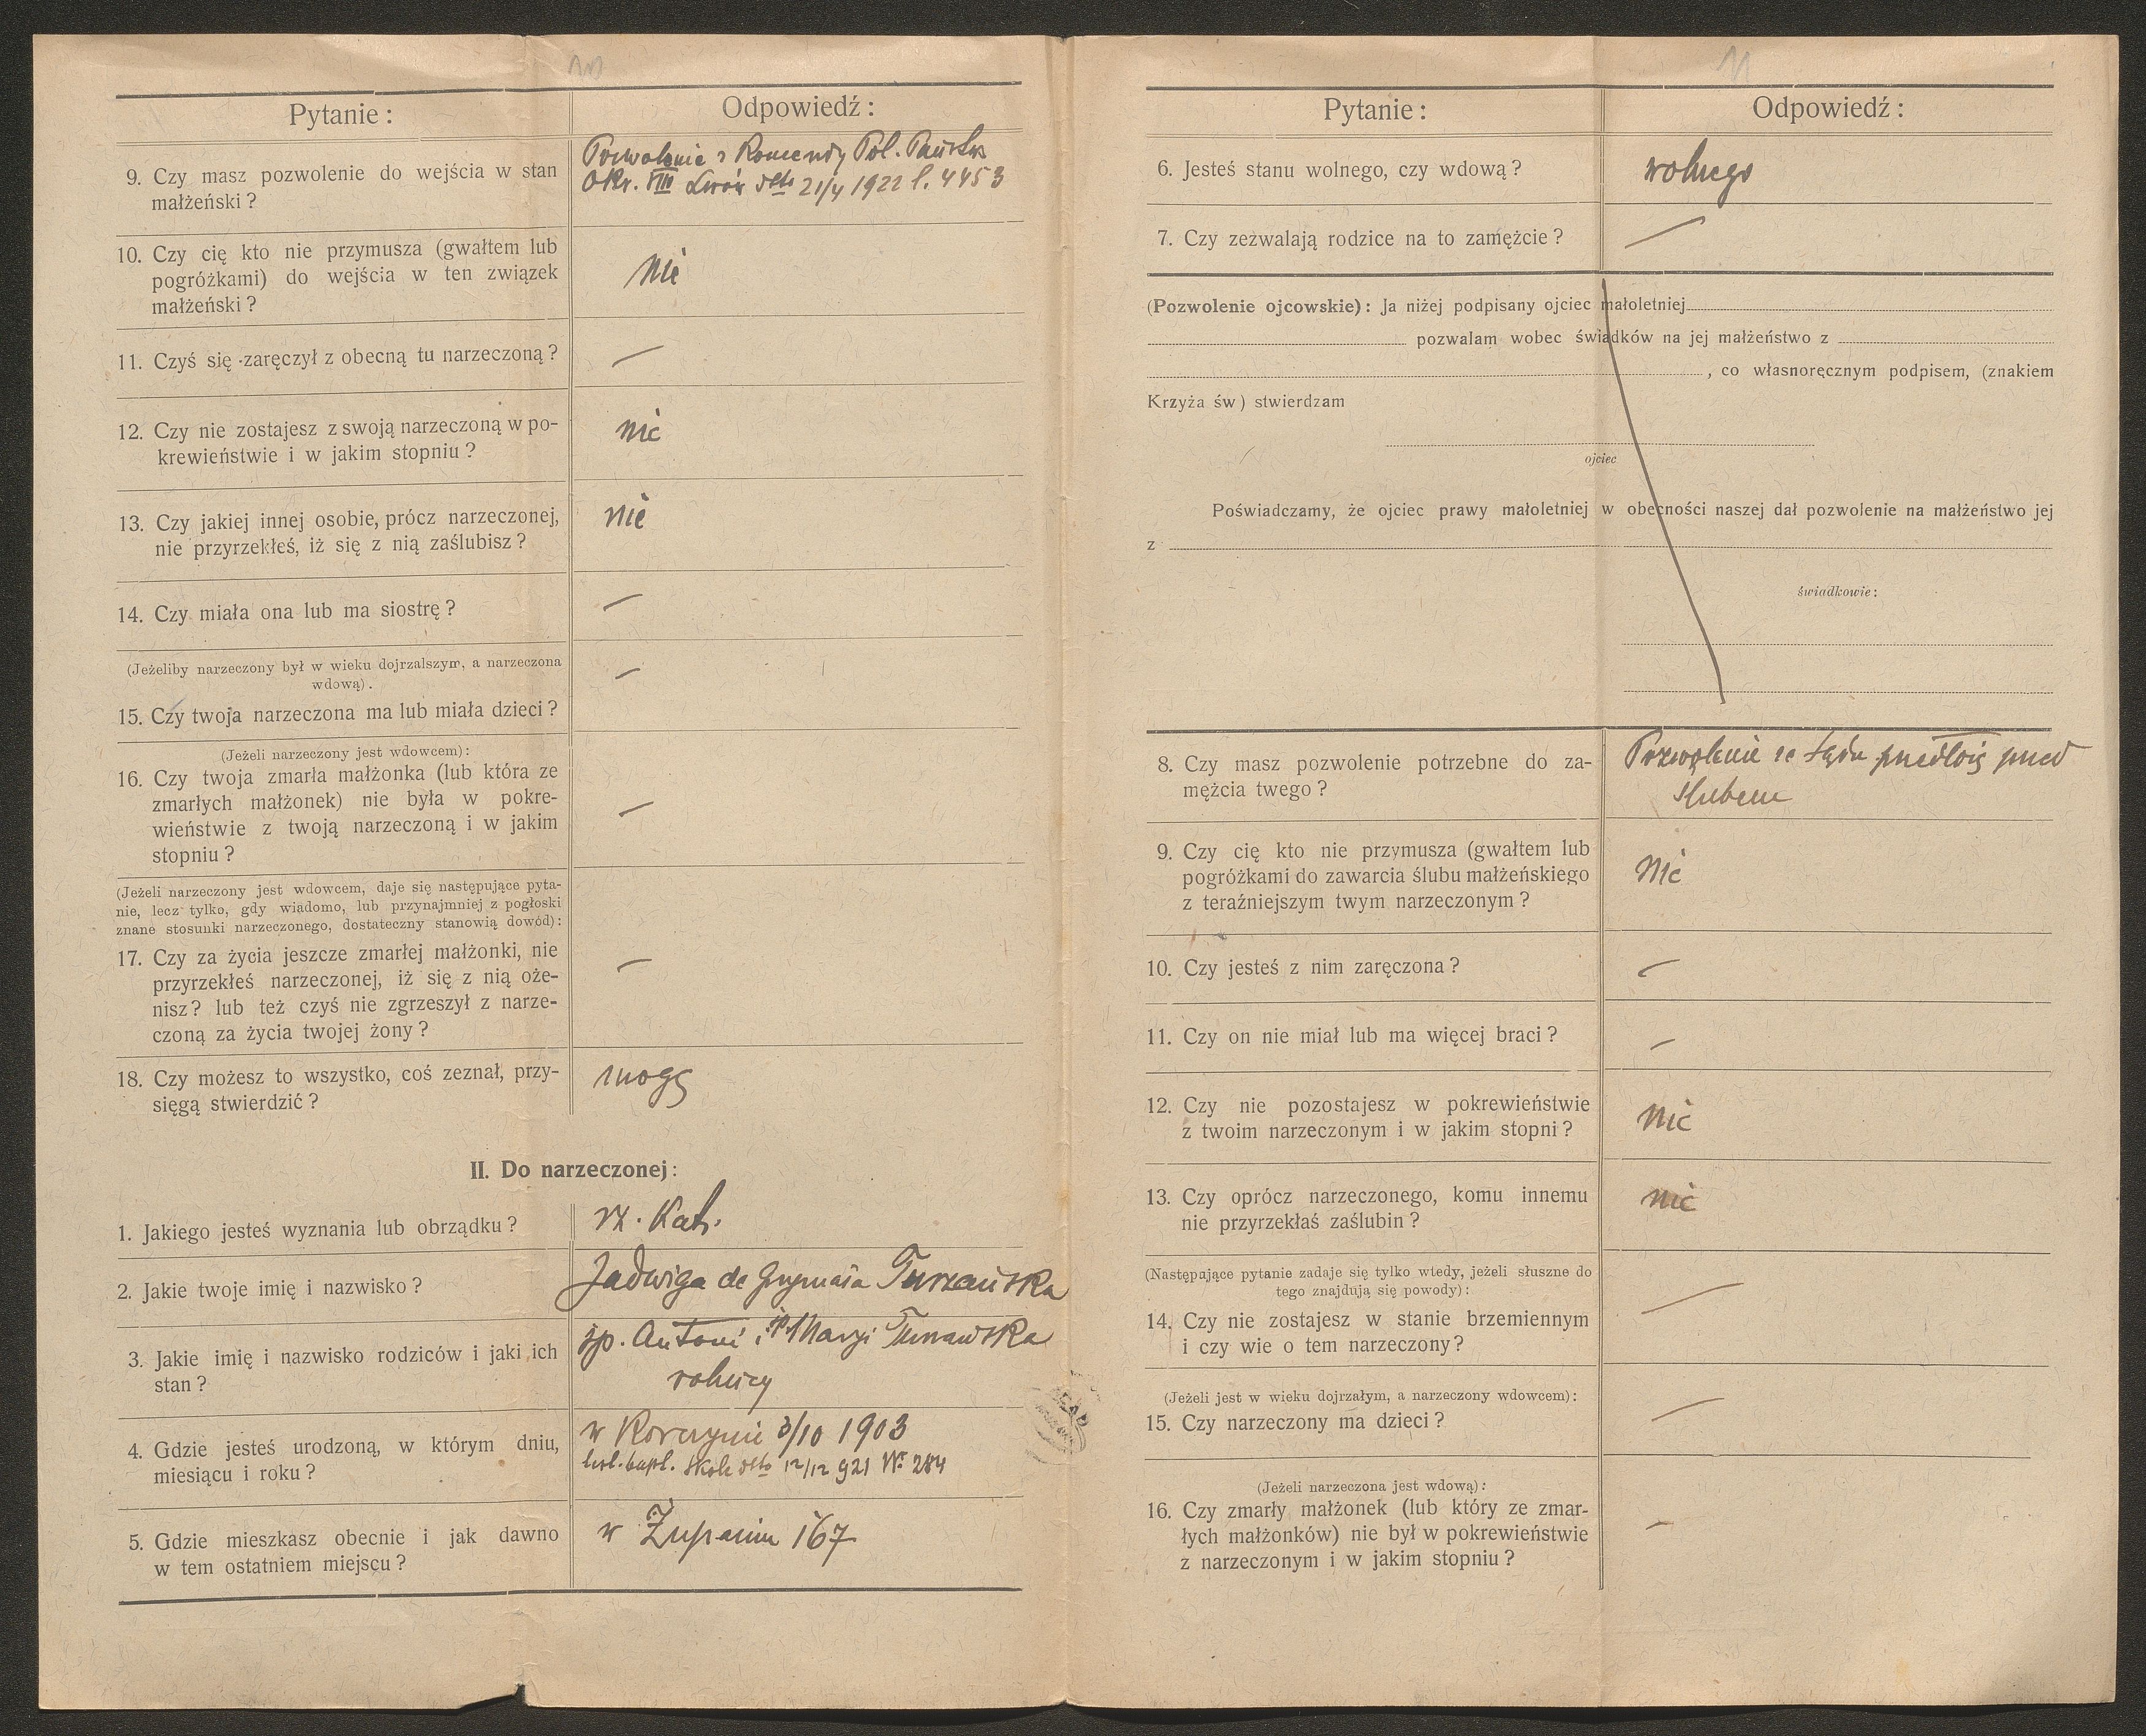 Pytanie :
Odpowiedź :
9. Czy masz pozwolenie do wejścia w stan
małżeński ?
Pozwolenie z Komendy Pol. Państw
Okr. VIII Lwów dto 21/4 1922 l. 4453
10. Czy cię kto nie przymusza (gwałtem lub
pogróżkami) do wejścia w ten związek
małżeński ?
Nie
11. Czyś się zaręczył z obecną tu narzeczoną ?
—
12. Czy nie zostajesz z swoją narzeczoną w po-
krewieństwie i w jakim stopniu ?
nie
13. Czy jakiej innej osobie, prócz narzeczonej,
nie przyrzekłeś, iż się z nią zaślubisz ?
nie
14. Czy miała ona lub ma siostrę ?
—
(Jeżeliby narzeczony był w wieku dojrzalszym, a narzeczona
wdową).
15. Czy twoja narzeczona ma lub miała dzieci ?
—
(Jeżeli narzeczony jest wdowcem) :
16. Czy twoja zmarła małżonka (lub która ze
zmarłych małżonek) nie była w pokre-
wieństwie z twoją narzeczoną i w jakim
stopniu ?
—
(Jeżeli narzeczony jest wdowcem, daje się następujące pyta-
nie, lecz tylko, gdy wiadomo, lub przynajmniej z pogłoski
znane stosunki narzeczonego, dostateczny stanowią dowód) :
17. Czy za życia jeszcze zmarłej małżonki, nie
przyrzekłeś narzeczonej, iż się z nią oże-
nisz ? lub też czyś nie zgrzeszył z narze-
czoną za życia twojej żony ?
—
18. Czy możesz to wszystko, coś zeznał, przy-
sięgą stwierdzić ?
mogę
II. Do narzeczonej :
1. Jakiego jesteś wyznania lub obrządku ?
rz. Kat.
2. Jakie twoje imię i nazwisko ?
Jadwiga de Turzańska
3. Jakie imię i nazwisko rodziców i jaki ich
stan ?
śp. Antoni i śp. Maryi Turzańska
rolnicy
4. Gdzie jesteś urodzoną, w którym dniu,
miesiącu i roku ?
w Korczynie 3/10 1903
bapt. Skole dto 12/12 921 Nr 284
5. Gdzie mieszkasz obecnie i jak dawno
w tem ostatniem miejscu ?
w Żupaniu 167
11
Pytanie :
Odpowiedź :
6. Jesteś stanu wolnego, czy wdową ?
wolnego
7. Czy zezwalają rodzice na to zamężcie ?
—
(Pozwolenie ojcowskie) : Ja niżej podpisany ojciec małoletniej
pozwalam wobec świadków na jej małżeństwo z
, co własnoręcznym podpisem, (znakiem
Krzyża św) stwierdzam
ojciec
Poświadczamy, że ojciec prawy małoletniej w obecności naszej dał pozwolenie na małżeństwo jej
z
świadkowie :
8. Czy masz pozwolenie potrzebne do za-
mężcia twego ?
Pozwolenie ze Sądu przedłoży przed
ślubem
9. Czy cię kto nie przymusza (gwałtem lub
pogróżkami do zawarcia ślubu małżeńskiego
z teraźniejszym twym narzeczonym ?
Nie
10. Czy jesteś z nim zaręczona ?
—
11. Czy on nie miał lub ma więcej braci ?
—
12. Czy nie pozostajesz w pokrewieństwie
z twoim narzeczonym i w jakim stopni ?
Nie
13. Czy oprócz narzeczonego, komu innemu
nie przyrzekłaś zaślubin ?
nie
(Następujące pytanie zadaje się tylko wtedy, jeżeli słuszne do
tego znajdują się powody) :
14. Czy nie zostajesz w stanie brzemiennym
i czy wie o tem narzeczony ?
—
(Jeżeli jest w wieku dojrzałym, a narzeczony wdowcem) :
15. Czy narzeczony ma dzieci ?
—
(Jeżeli narzeczona jest wdową) :
16. Czy zmarły małżonek (lub który ze zmar-
łych małżonków) nie był w pokrewieństwie
z narzeczonym i w jakim stopniu ?
—